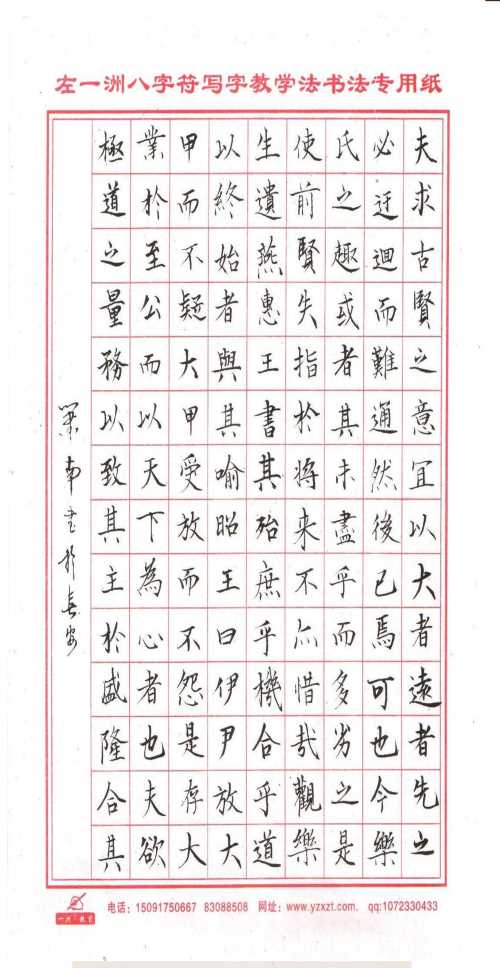 左一洲八字符写字教学法书法专用纸
夫求古賢之意宜以大者遠者先之
必迂迴而難通然後已焉可也今樂
氏之趣或者其未盡乎而多劣之是
使前賢失指於將来不亦惜哉觀樂
生遺燕惠王書其殆庶乎機合乎道
以終始者與其喻昭王曰伊尹放大
甲而不疑大甲受放而不怨是存大
業於至公而以天下為心者也夫欲
極道之量務以致其主於盛隆合其
南書於長安
一洲教育
电话：15091750667 83088508 网址：www.yzxzt.com. qq:1072330433